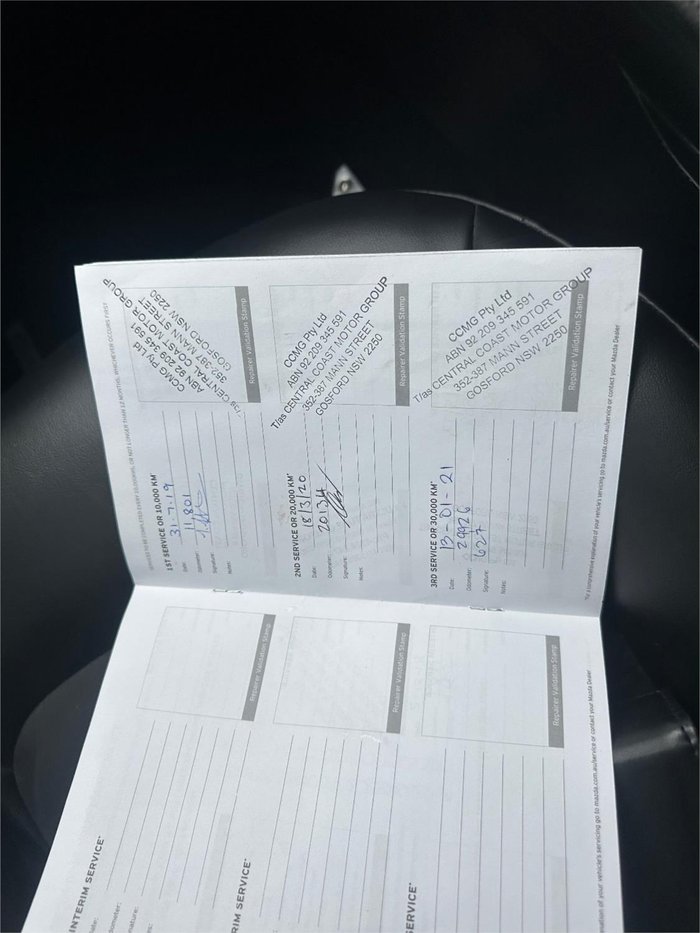 SERVICES TO BE COMPLETED EVERY 10,000KMS, OR NOT LONGER THAN 12 MONTHS, WHICHEVER OCCURS FIRST
1ST SERVICE OR 10,000 KM*
Date: 31.7.19
Odometer: 11,801
Signature:
Notes:
CCMG Pty Ltd
ABN 92 209 345 591
T/as CENTRAL COAST MOTOR GROUP
352-387 MANN STREET
GOSFORD NSW 2250
Repairer Validation Stamp
2ND SERVICE OR 20,000 KM*
Date: 18/3/20
Odometer: 20134
Signature:
Notes:
CCMG Pty Ltd
ABN 92 209 345 591
T/as CENTRAL COAST MOTOR GROUP
352-387 MANN STREET
GOSFORD NSW 2250
Repairer Validation Stamp
3RD SERVICE OR 30,000 KM*
Date: 13-01-21
Odometer: 29926
Signature: 627
Notes:
CCMG Pty Ltd
ABN 92 209 345 591
T/as CENTRAL COAST MOTOR GROUP
352-387 MANN STREET
GOSFORD NSW 2250
Repairer Validation Stamp
*For a comprehensive explanation of your vehicle's servicing go to mazda.com.au/service or contact your Mazda Dealer
INTERIM SERVICE*
Repairer Validation Stamp
RIM SERVICE*
Repairer Validation Stamp
SERVICE*
Repairer Validation Stamp
anation of your vehicle's servicing go to mazda.com.au/service or contact your Mazda Dealer